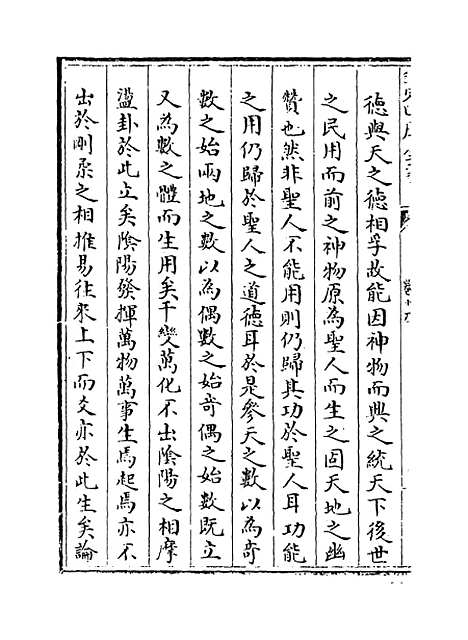 德與天之德相孚故能因神物而興之統天下後世
之民用而前之神物原為聖人而生之固天地之幽
贊也然非聖人不能用則仍歸其功於聖人耳功能
之用仍歸於聖人之道德耳於是參天之數以為奇
數之始兩地之數以為偶數之始奇偶之始數既立
又為數之體而生用矣千變萬化不出陰陽之相摩
盪卦於此立矣陰陽發揮萬物萬事生焉起焉亦不
出於剛柔之相推易往來上下而爻亦於此生矣論